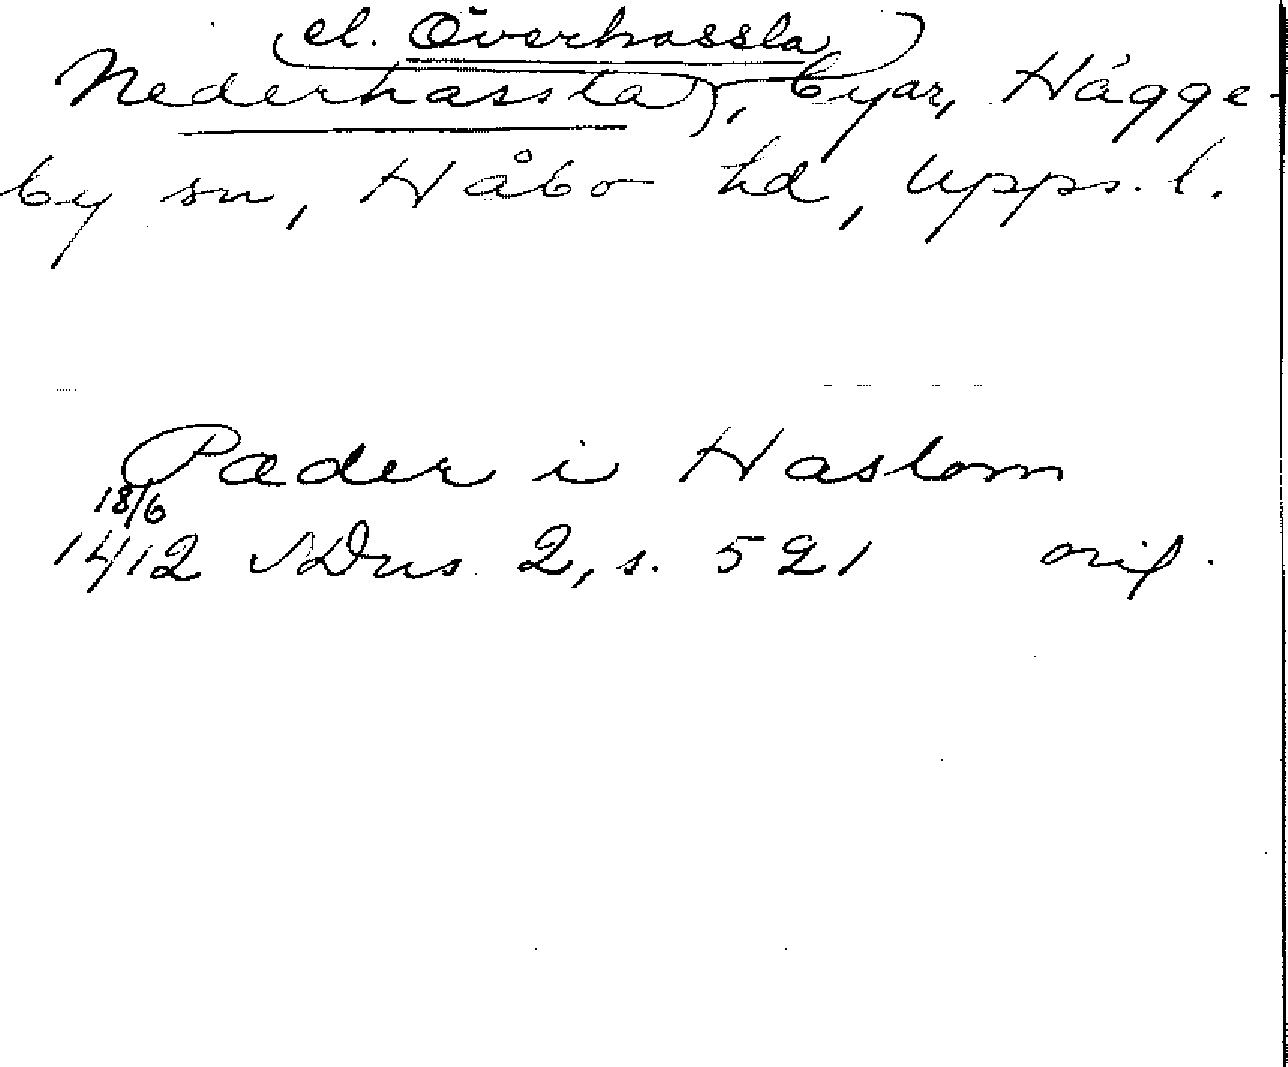 (el. Överhassla)
Nederhassla), byar, Hägge-
by sn, Håbo hd, Upps. l.
Pæder i Haslom
18/6
1412 SDns 2, s. 521 orig.